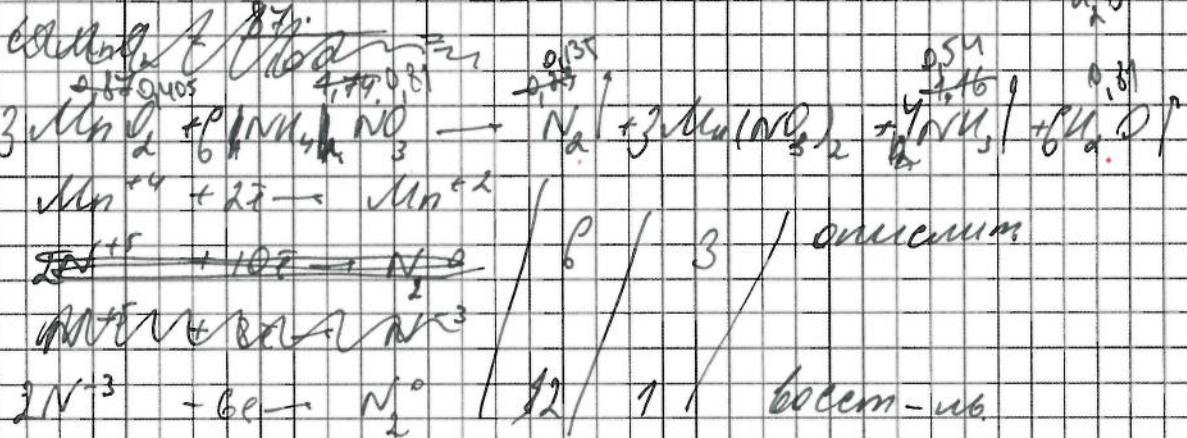 87
0,405 0,81 0,135 0,54 0,81
3MnO₂ + 6NH₄NO₃ → N₂↑ + 3Mn(NO₃)₂ + 4NH₃↑ + 6H₂O↑
Mn⁺⁴ + 2ē → Mn⁺² / 6 / 3 / окислит
2N⁺⁵ + 10ē → N₂⁰
2N⁻³ - 6e → N₂⁰ / 2 / 1 / восст-ль